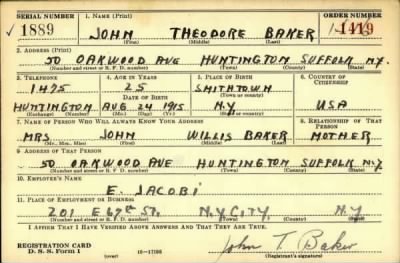 SERIAL NUMBER 1. NAME (Print) ORDER NUMBER
1889 JOHN THEODORE BAKER 1419
(First) (Middle) (Last)
2. ADDRESS (Print)
50 OAKWOOD AVE HUNTINGTON SUFFOLK N.Y.
(Number and street or R. F. D. number) (Town) (County) (State)
3. TELEPHONE 4. AGE IN YEARS 5. PLACE OF BIRTH 6. COUNTRY OF CITIZENSHIP
1475 25 SMITHTOWN
DATE OF BIRTH (Town or county)
HUNTINGTON AUG 24 1915 N.Y USA
(Exchange) (Number) (Mo.) (Day) (Yr.) (State or country)
7. NAME OF PERSON WHO WILL ALWAYS KNOW YOUR ADDRESS 8. RELATIONSHIP OF THAT PERSON
MRS JOHN WILLIS BAKER MOTHER
(Mr., Mrs., Miss) (First) (Middle) (Last)
9. ADDRESS OF THAT PERSON
50 OAKWOOD AVE HUNTINGTON SUFFOLK N.Y
(Number and street or R. F. D. number) (Town) (County) (State)
10. EMPLOYER'S NAME
E. JACOBI
11. PLACE OF EMPLOYMENT OR BUSINESS
201 E 67th ST. N.Y. CITY. N.Y
(Number and street or R. F. D. number) (Town) (County) (State)
I AFFIRM THAT I HAVE VERIFIED ABOVE ANSWERS AND THAT THEY ARE TRUE.
REGISTRATION CARD
D. S. S. Form 1 (over) 16-17105 John T. Baker
(Registrant's signature)